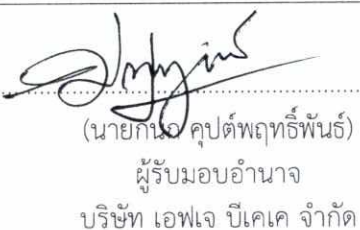 (นายกนต คุปต์พฤทธิ์พันธ์)
ผู้รับมอบอำนาจ
บริษัท เอฟเจ บีเคเค จำกัด